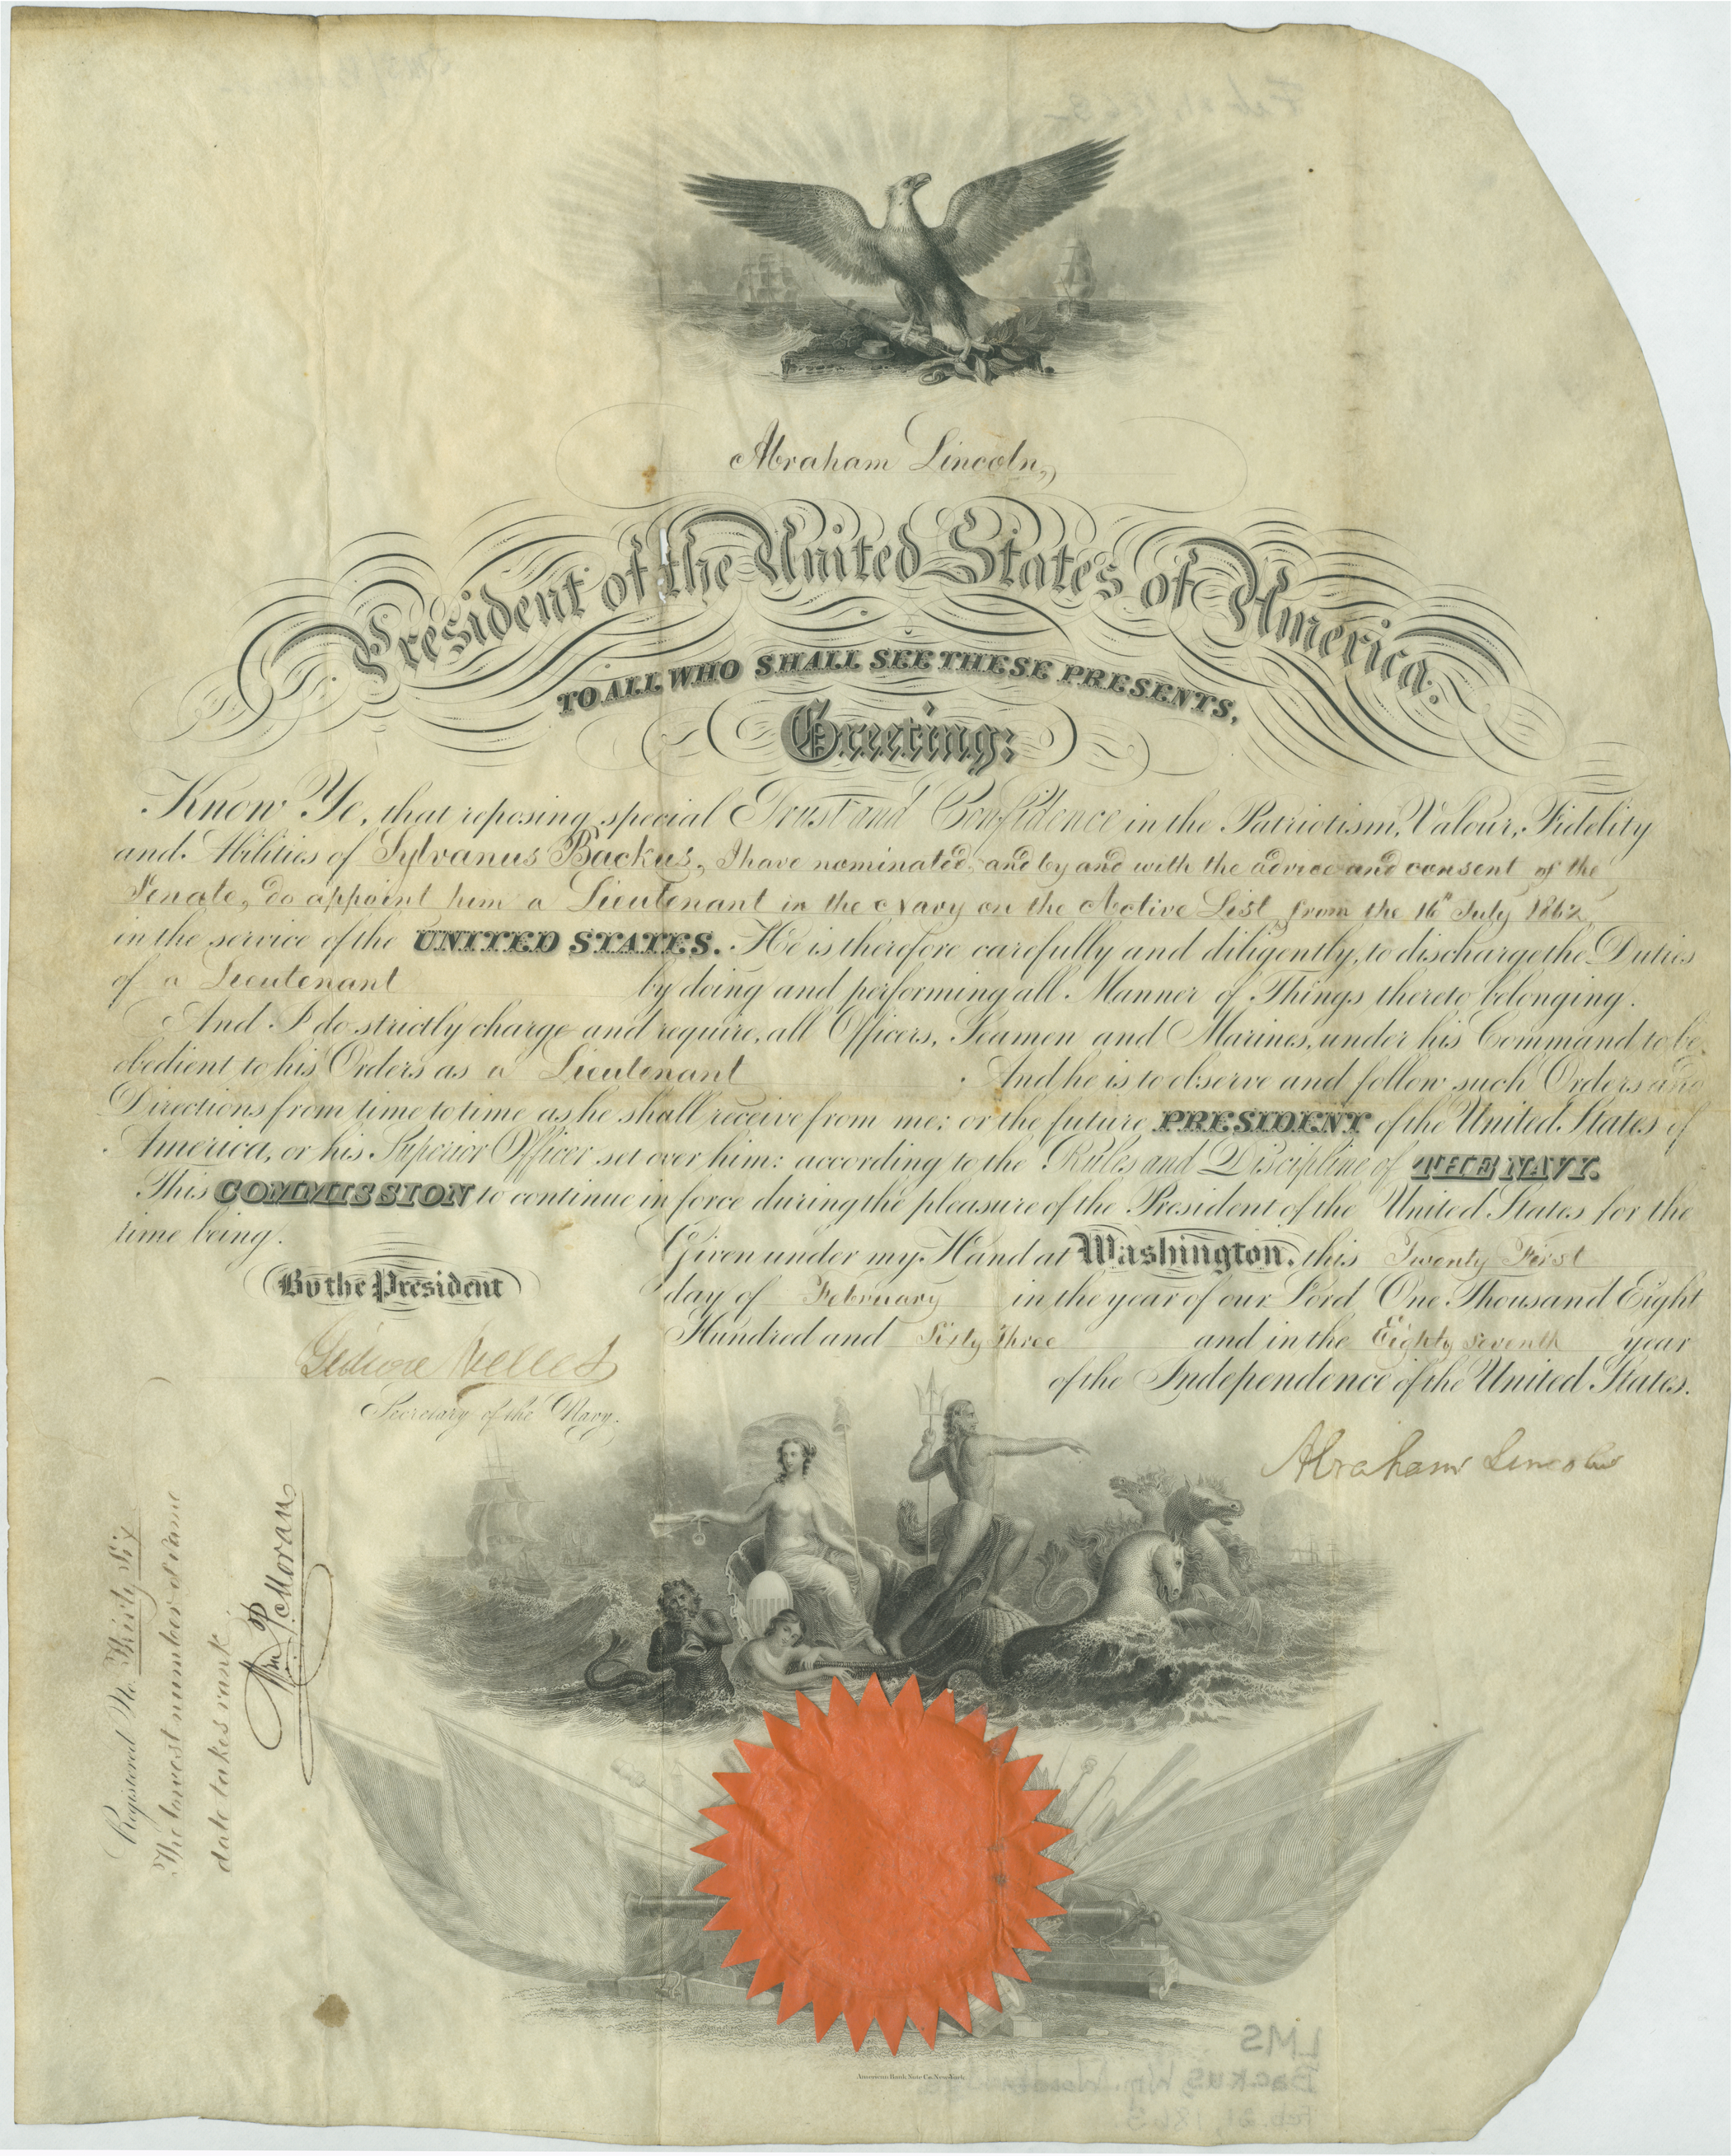 Abraham Lincoln,
President of the United States of America.
TO ALL WHO SHALL SEE THESE PRESENTS,
Greeting:
Know Ye, that reposing special Trust and Confidence in the Patriotism, Valour, Fidelity
and Abilities of Sylvanus Backus, I have nominated, and by and with the advice and consent of the
Senate, do appoint him a Lieutenant in the Navy on the Active List from the 16th July 1862,
in the service of the UNITED STATES. He is therefore carefully and diligently, to discharge the Duties
of a Lieutenant by doing and performing all Manner of Things thereto belonging.
And I do strictly charge and require, all Officers, Seamen and Marines, under his Command to be
obedient to his Orders as a Lieutenant. And he is to observe and follow such Orders and
Directions from time to time as he shall receive from me; or the future PRESIDENT of the United States of
America, or his Superior Officer set over him: according to the Rules and Discipline of THE NAVY.
This COMMISSION to continue in force during the pleasure of the President of the United States for the
time being.
Given under my Hand at Washington, this Twenty First
day of February in the year of our Lord One Thousand Eight
Hundred and Sixty Three and in the Eighty Seventh year
of the Independence of the United States.
By the President
Gideon Welles
Secretary of the Navy.
Abraham Lincoln
Registered No. Thirty Six
The lowest number of same
date takes rank.
Wm P. Moran
American Bank Note Co. New York.
LMS
Backus, Wm.
Feb. 21, 1863